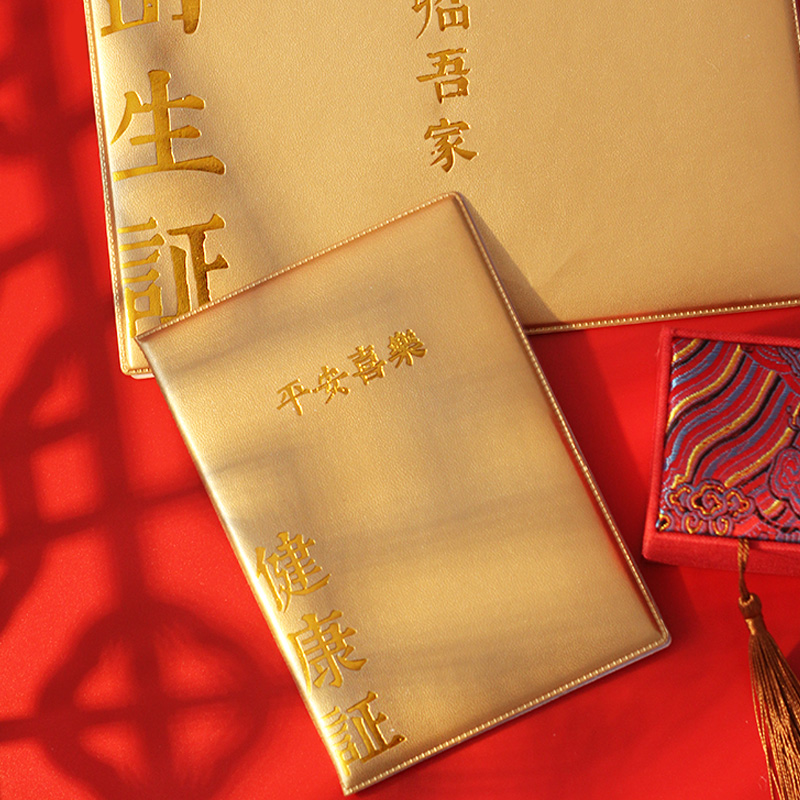 出生証
临吾家
平安喜樂
健康証